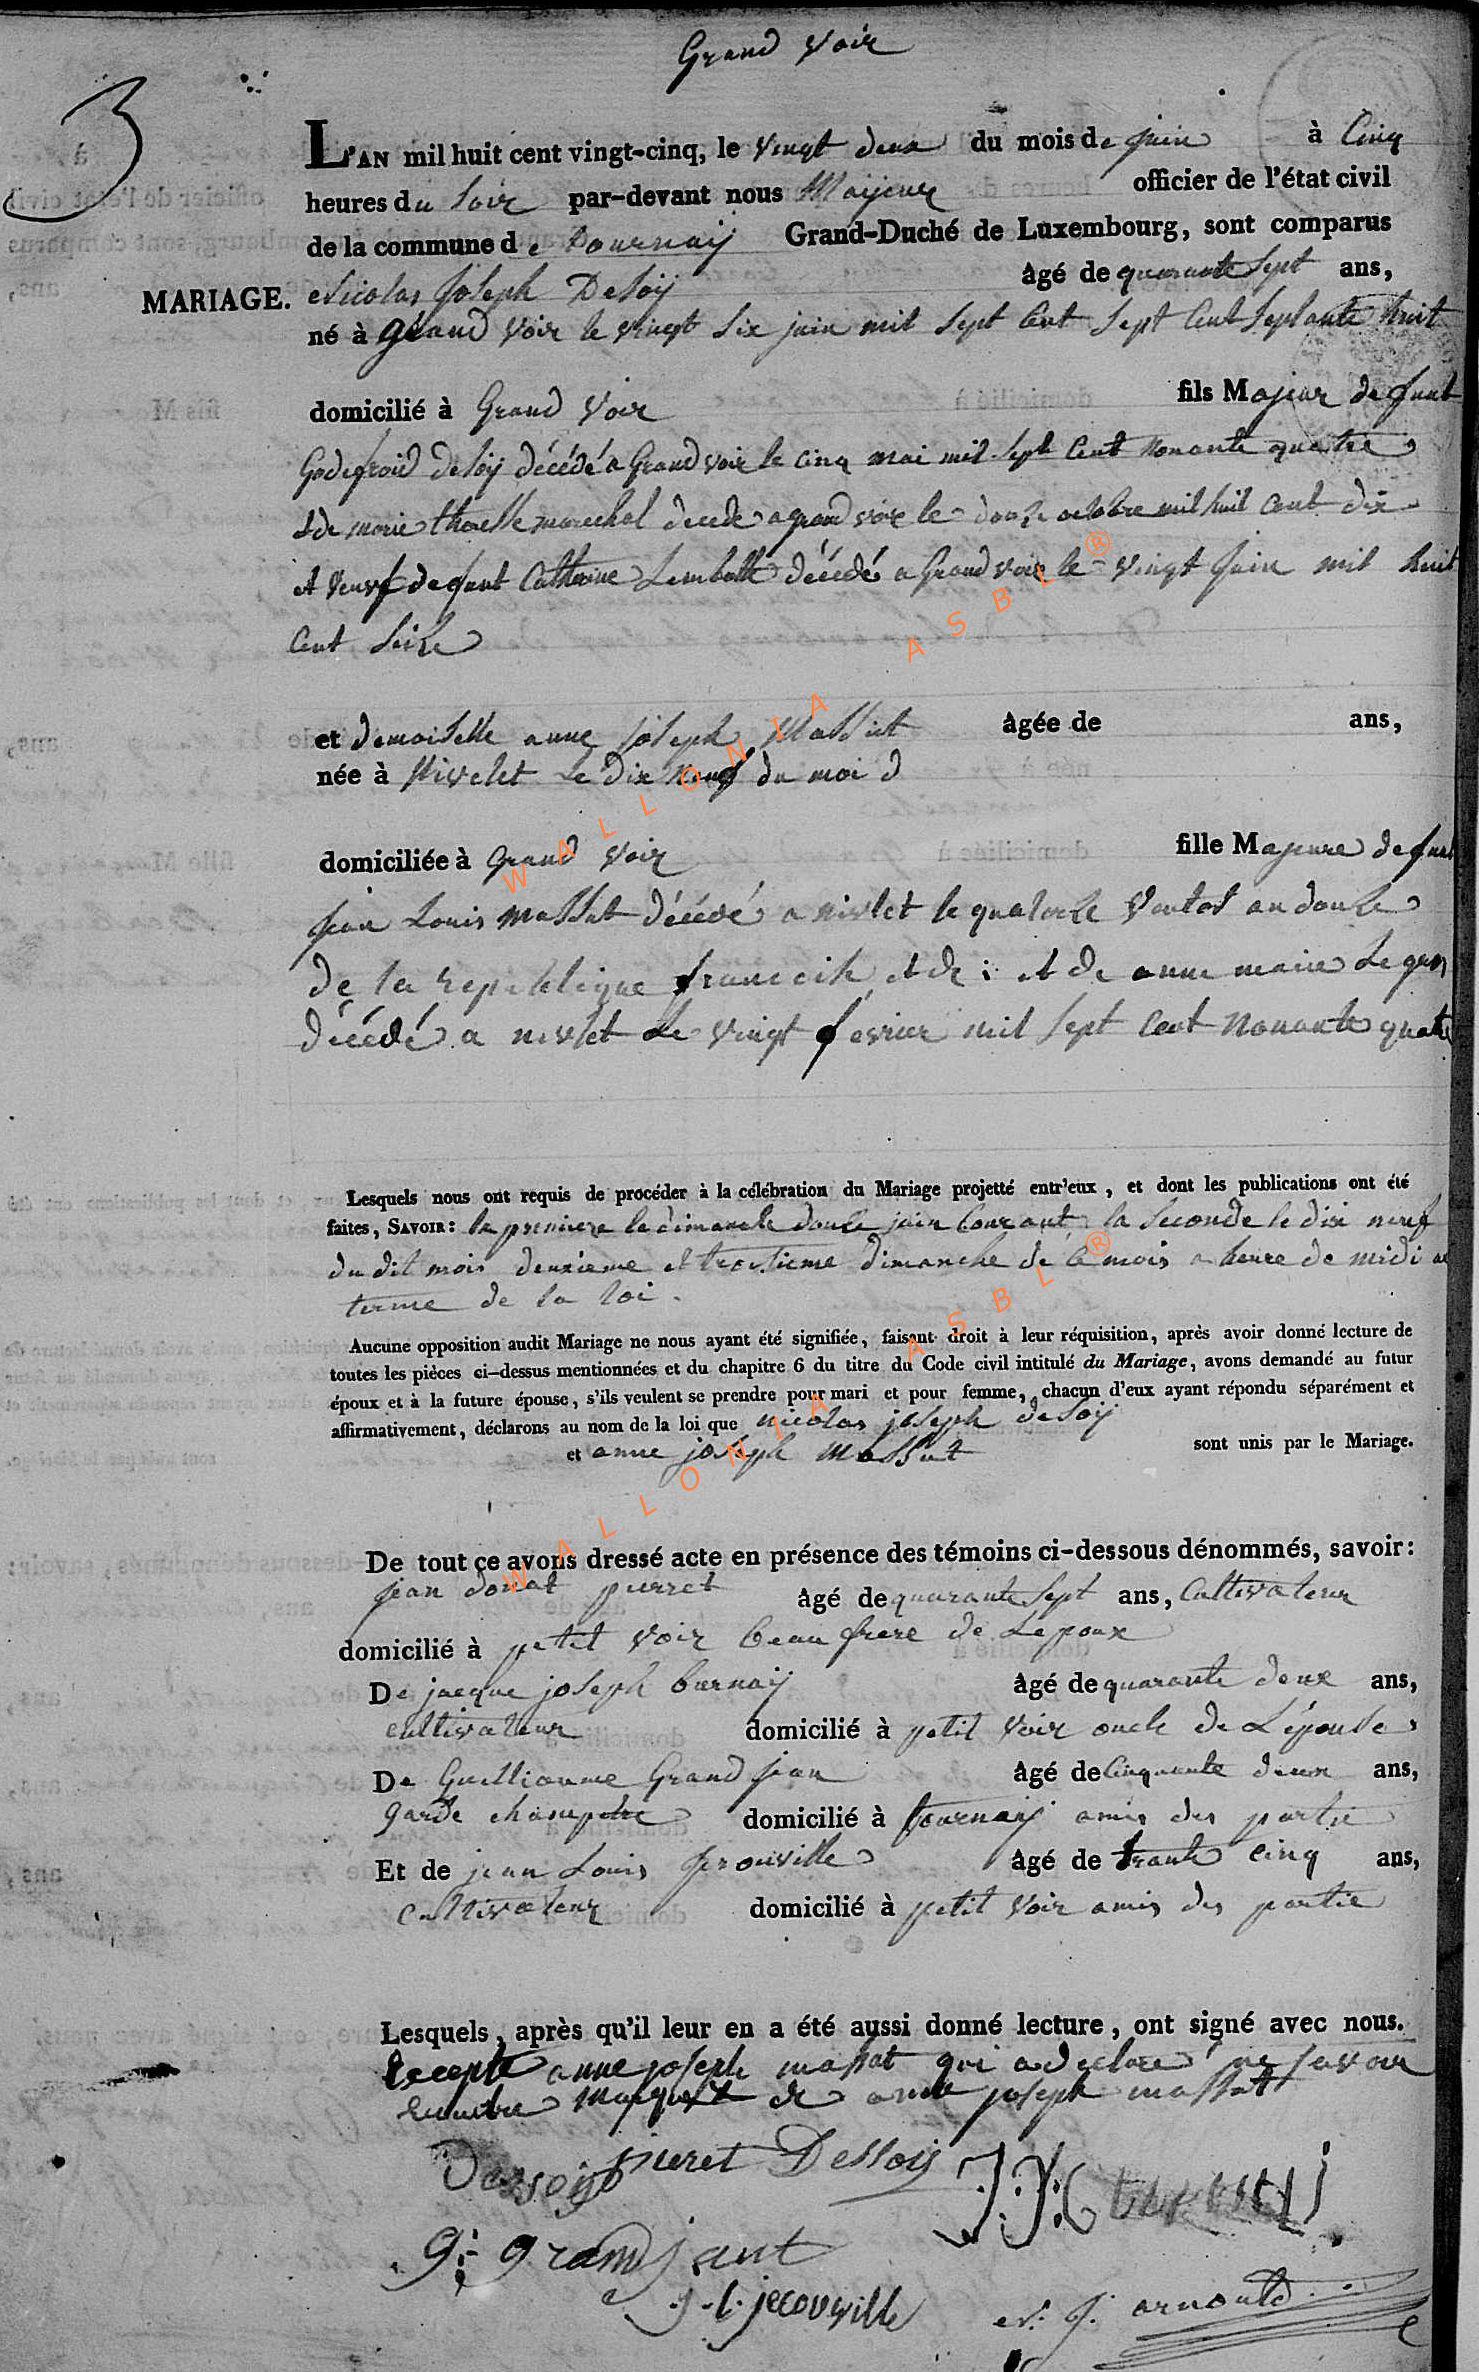 Grand Voir
3
L'AN mil huit cent vingt-cinq, le vingt deux du mois de juin à Cinq
heures du Soir par-devant nous Maijeur officier de l'état civil
de la commune de tournaij Grand-Duché de Luxembourg, sont comparus
MARIAGE. Nicolas Joseph Desoij âgé de quarante Sept ans,
né à Grand Voir le vingt Six juin mil Sept Cent Sept Cent Septante huit
domicilié à Grand Voir fils Majeur defunt
Godefroid desoij décédé a Grand voir le cinq mai mil Sept Cent Nonante quatre
& de marie marechal decede a grand voir le douze octobre mil huit Cent dix
et Veuf defunt Catherine Lambotte décédé a Grand voir le vingt juin mil huit
Cent Seize
et demoiselle anne joseph Massut âgée de ans,
née à Nivelet Le dix Neuf du moi d
domiciliée à Grand Voir fille Majeure defunt
jean Louis Massut décédé a nivlet le quatorze Ventos an douze
de la republique et de : et de anne marie
décédé a nivlet Le vingt fevrier mil Sept Cent Nonante quatre
Lesquels nous ont requis de procéder à la célébration du Mariage projetté entr'eux, et dont les publications ont été
faites, SAVOIR: la premiere le dimanche douze juin Courant la Seconde le dix neuf
du dit mois deuxieme et troisieme dimanche de ce mois a heure de midi au
terme de la loi.
Aucune opposition audit Mariage ne nous ayant été signifiée, faisant droit à leur réquisition, après avoir donné lecture de
toutes les pièces ci-dessus mentionnées et du chapitre 6 du titre du Code civil intitulé du Mariage, avons demandé au futur
époux et à la future épouse, s'ils veulent se prendre pour mari et pour femme, chacun d'eux ayant répondu séparément et
affirmativement, déclarons au nom de la loi que nicolas joseph desoij
et anne joseph Massut sont unis par le Mariage.
De tout ce avons dressé acte en présence des témoins ci-dessous dénommés, savoir:
jean donat pierret âgé de quarante Sept ans, Cultivateur
domicilié à petit Voir beau frere de Lepoux
De jacque joseph burnaij âgé de quarante deux ans,
cultivateur domicilié à petit Voir oncle de L'épouse
De Guilliaume Grand jean âgé de Cinquante deux ans,
garde champetre domicilié à tournaij amis des partie
Et de jean Louis jerouville âgé de trante cinq ans,
Cultivateur domicilié à petit Voir amis des partie
Lesquels, après qu'il leur en a été aussi donné lecture, ont signé avec nous.
Excepte anne joseph massut qui a declare ne savoir
de anne joseph massut
pieret Dessoij
G: grandjant
j. l. jerouville
N. J. arnould
WALLONIA ASBL ®
WALLONIA ASBL ®